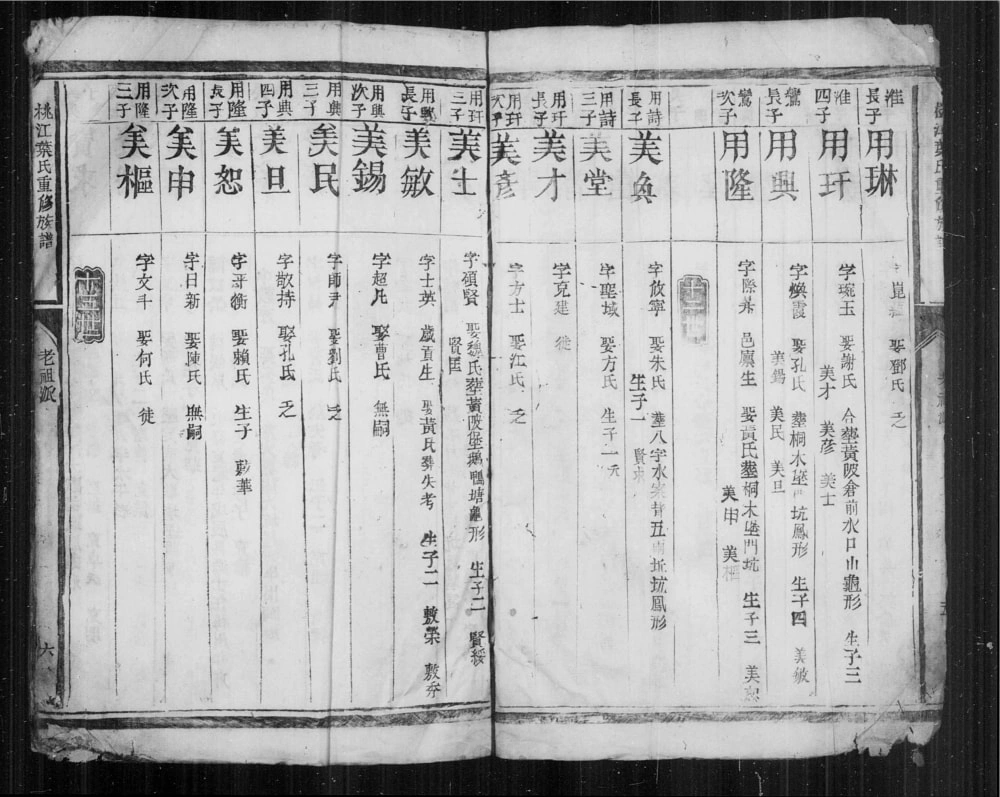 淮長子 用琳 字崑 娶鄧氏 乏
淮四子 用玕 字琬玉 娶謝氏 合塟黃陂倉前水口山龜形 生子三 美才 美彥 美士
鸞長子 用興 字煥霞 娶孔氏 塟桐木垇門坑鳳形 生子四 美敏 美錫 美民 美旦
鸞次子 用隆 字際 邑廩生 娶黃氏塟桐木垇門坑 生子三 美恕 美申 美樞
用詩長子 美奐 字攸寧 娶朱氏 塟八字水 坑鳳形 生子一 賢來
用詩三子 美堂 字聖域 娶方氏 生子一
用玕長子 美才 字克建 徙
用玕次子 美彥 字方士 娶江氏 乏
用玕三子 美士 字碩賢 娶魏氏塟黃陂堡鵝鴨塘龜形 生子二 賢綏 賢匡
用興長子 美敏 字士英 歲貢生 娶黃氏塟失考 生子二 敷榮 敷
用興次子 美錫 字超凡 娶曹氏 無嗣
用興三子 美民 字師尹 娶劉氏 乏
用興四子 美旦 字敬持 娶孔氏 乏
用隆長子 美恕 字平衡 娶賴氏 生子 華
用隆次子 美申 字日新 娶陳氏 無嗣
用隆三子 美樞 字文千 娶何氏 徙
桃江葉氏重修族譜 老祖派 六